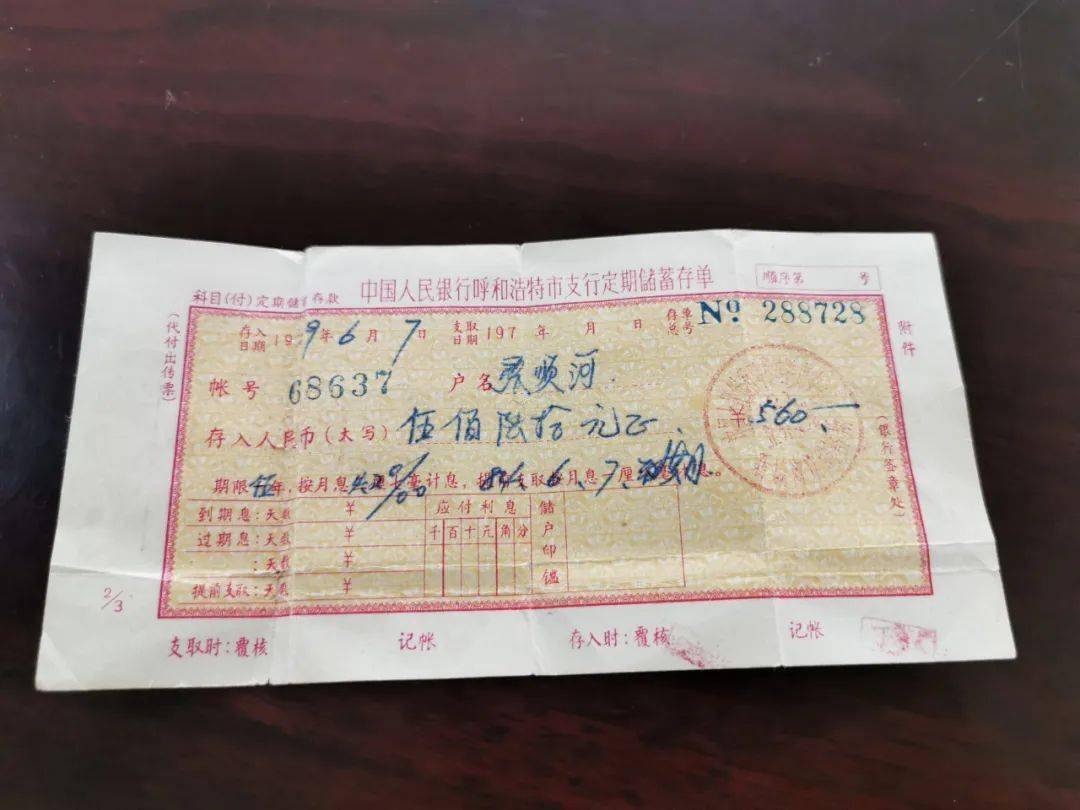 中国人民银行呼和浩特市支行定期储蓄存单
顺序第 号
科目(付)定期储蓄存款
存入日期 1979年6月7日 支取日期 197 年 月 日 存单总号 No 288728
附件
(代付出传票)
帐号 68637 户名 顺河
存入人民币(大写) 伍佰陆拾元正 560.—
(银行签章处)
期限伍年,按月息 计息, 支取按月息 厘 息。
到期息:天数 ¥ 应付利息 储户印鑑
过期息:天数 ¥ 千百十元角分
:天数 ¥
提前支取:天数 ¥
2/3
支取时:覆核 记帐 存入时:覆核 记帐